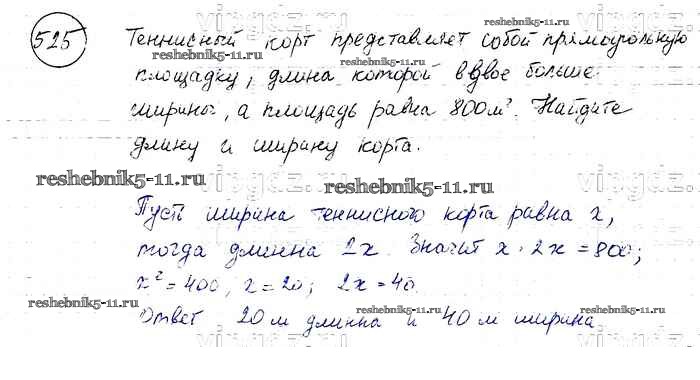 525
Теннисный корт представляет собой прямоугольную
площадку, длина которой вдвое больше
ширины, а площадь равна 800м². Найдите
длину и ширину корта.
Пусть ширина теннисного корта равна x,
тогда длинна 2x. Значит x · 2x = 800;
x² = 400, x = 20; 2x = 40.
Ответ 20 м длинна и 40 м ширина
reshebnik5-11.ru
reshebnik5-11.ru
reshebnik5-11.ru
reshebnik5-11.ru
reshebnik5-11.ru
reshebnik5-11.ru
vipgdz.ru
vipgdz.ru